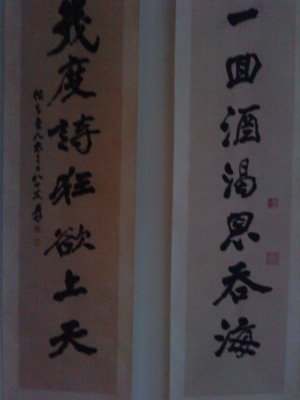 一回酒渴思吞海
幾度詩狂欲上天